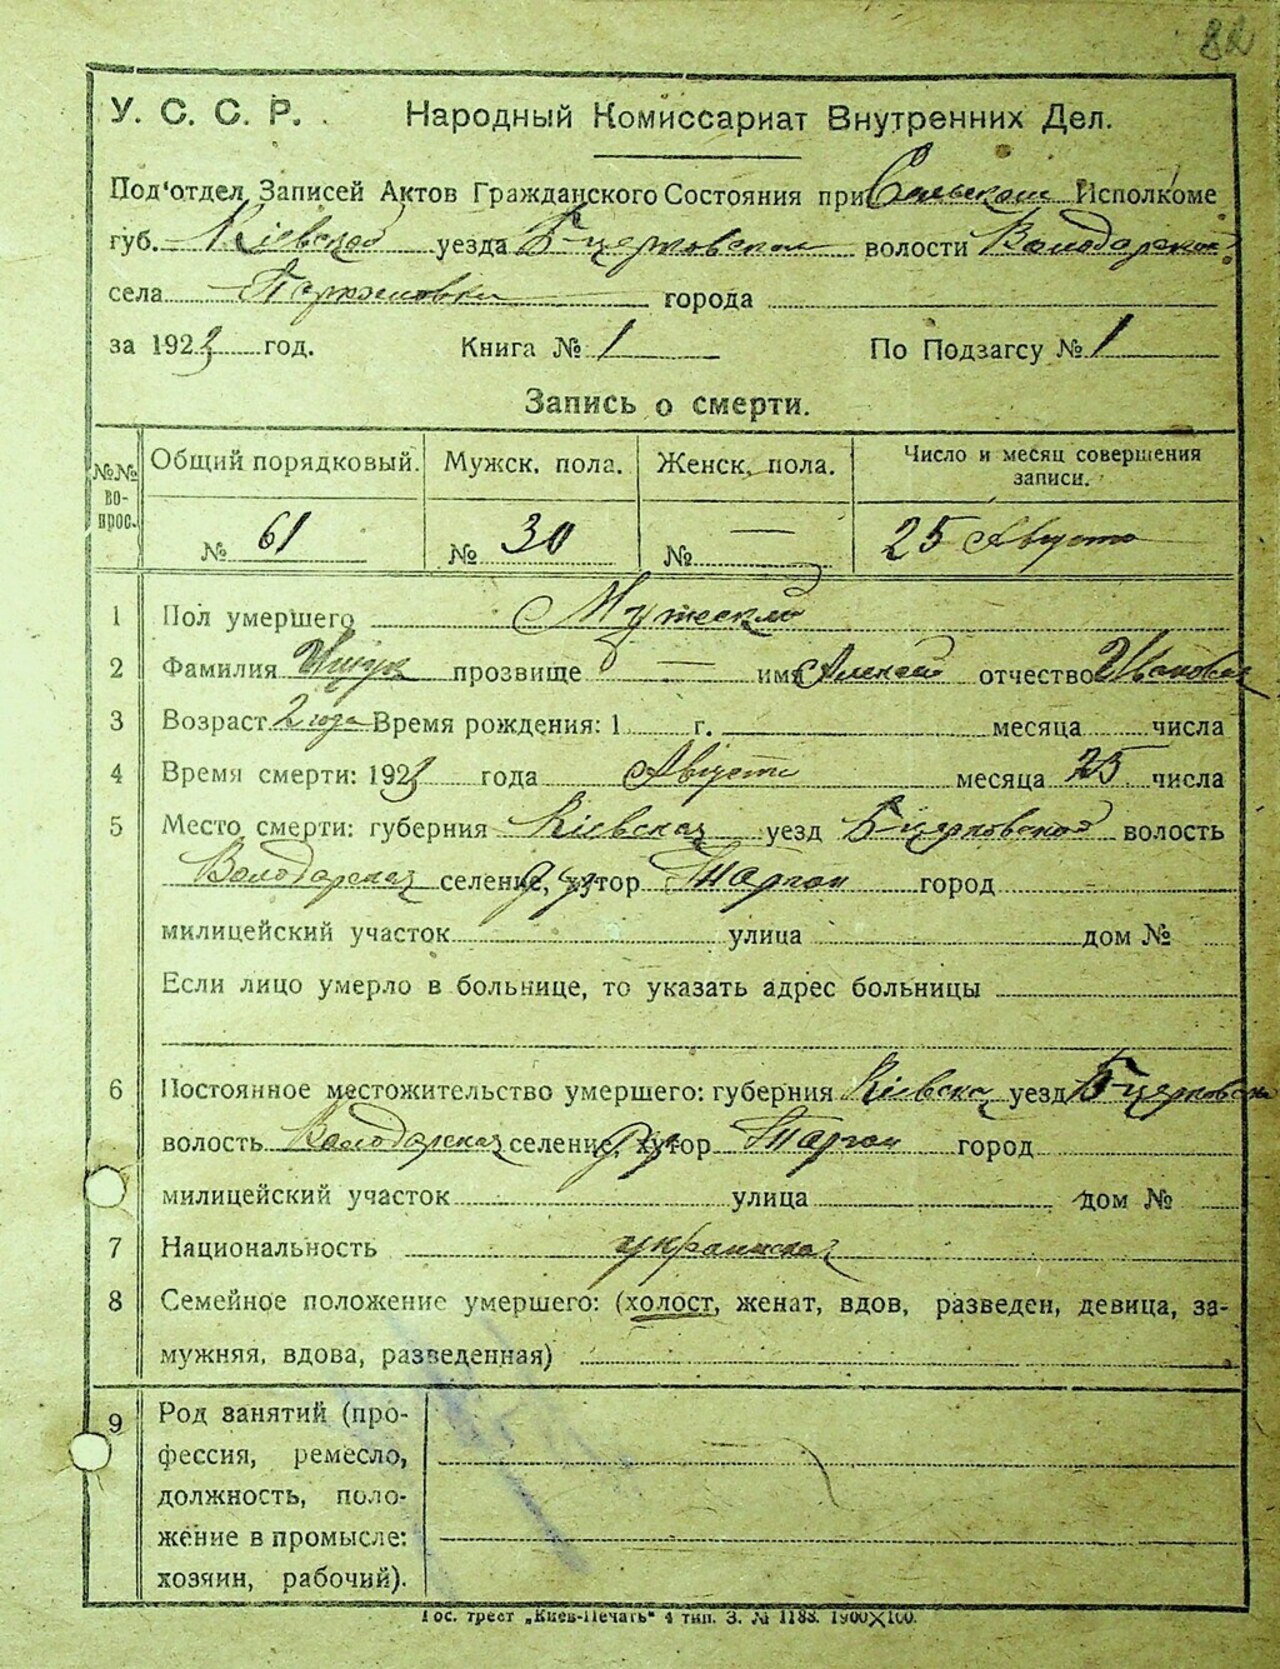 82
У. С. С. Р. Народный Комиссариат Внутренних Дел.
Под'отдел Записей Актов Гражданского Состояния при Сельском Исполкоме
губ. Кіевской уезда Б-церковской волости Володарской
села города
за 1923 год. Книга № 1 По Подзагсу № 1
Запись о смерти.
№№ вопрос. Общий порядковый. Мужск. пола. Женск. пола. Число и месяц совершения записи.
№ 61 № 30 № — 25 Августа
1 Пол умершего Мужеский
2 Фамилия Ищук прозвище — имя Алексей отчество Иванович
3 Возраст 2 года Время рождения: 1 г. месяца числа
4 Время смерти: 1923 года Августа месяца 25 числа
5 Место смерти: губерния Кіевская уезд Б-церковской волость
Володарская селение, хутор Тарган город
милицейский участок улица дом №
Если лицо умерло в больнице, то указать адрес больницы
6 Постоянное местожительство умершего: губерния Кіевска уезд Б-церковски
волость Володарская селение, хутор Тарган город
милицейский участок улица дом №
7 Национальность украинская
8 Семейное положение умершего: (холост, женат, вдов, разведен, девица, за-
мужняя, вдова, разведенная)
9 Род занятий (про-
фессия, ремесло,
должность, поло-
жение в промысле:
хозяин, рабочий).
Гос. трест „Киев-Печать" 4 тип. З. № 1188. 1900×100.